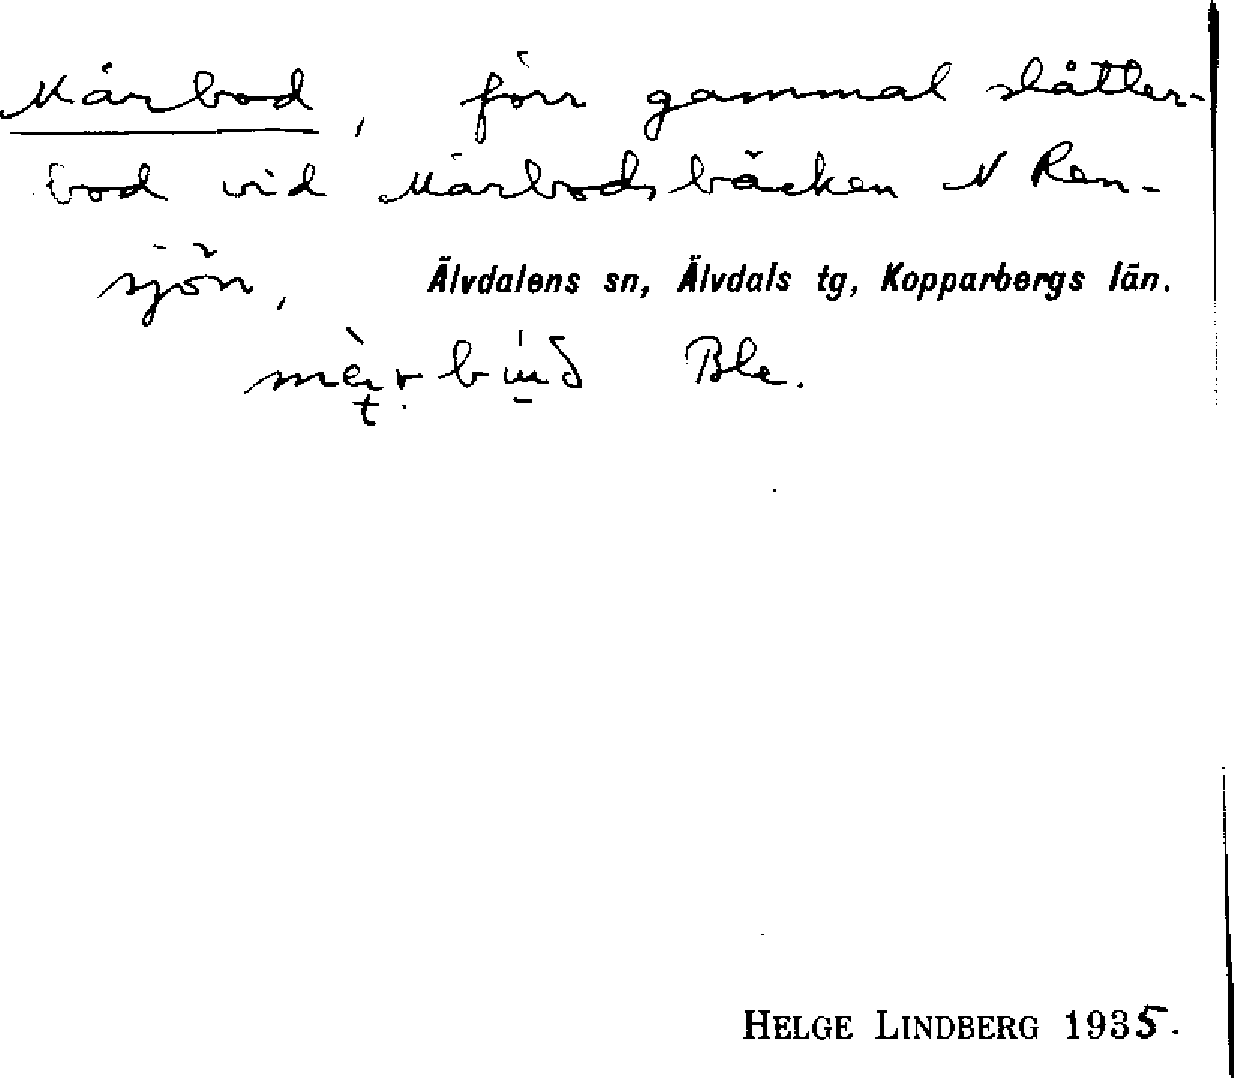 Mårbod, förr gammal slåtter-
bod vid Mårbodsbäcken N Ren-
sjön, Älvdalens sn, Älvdals tg, Kopparbergs län.
Ble.
HELGE LINDBERG 1935.